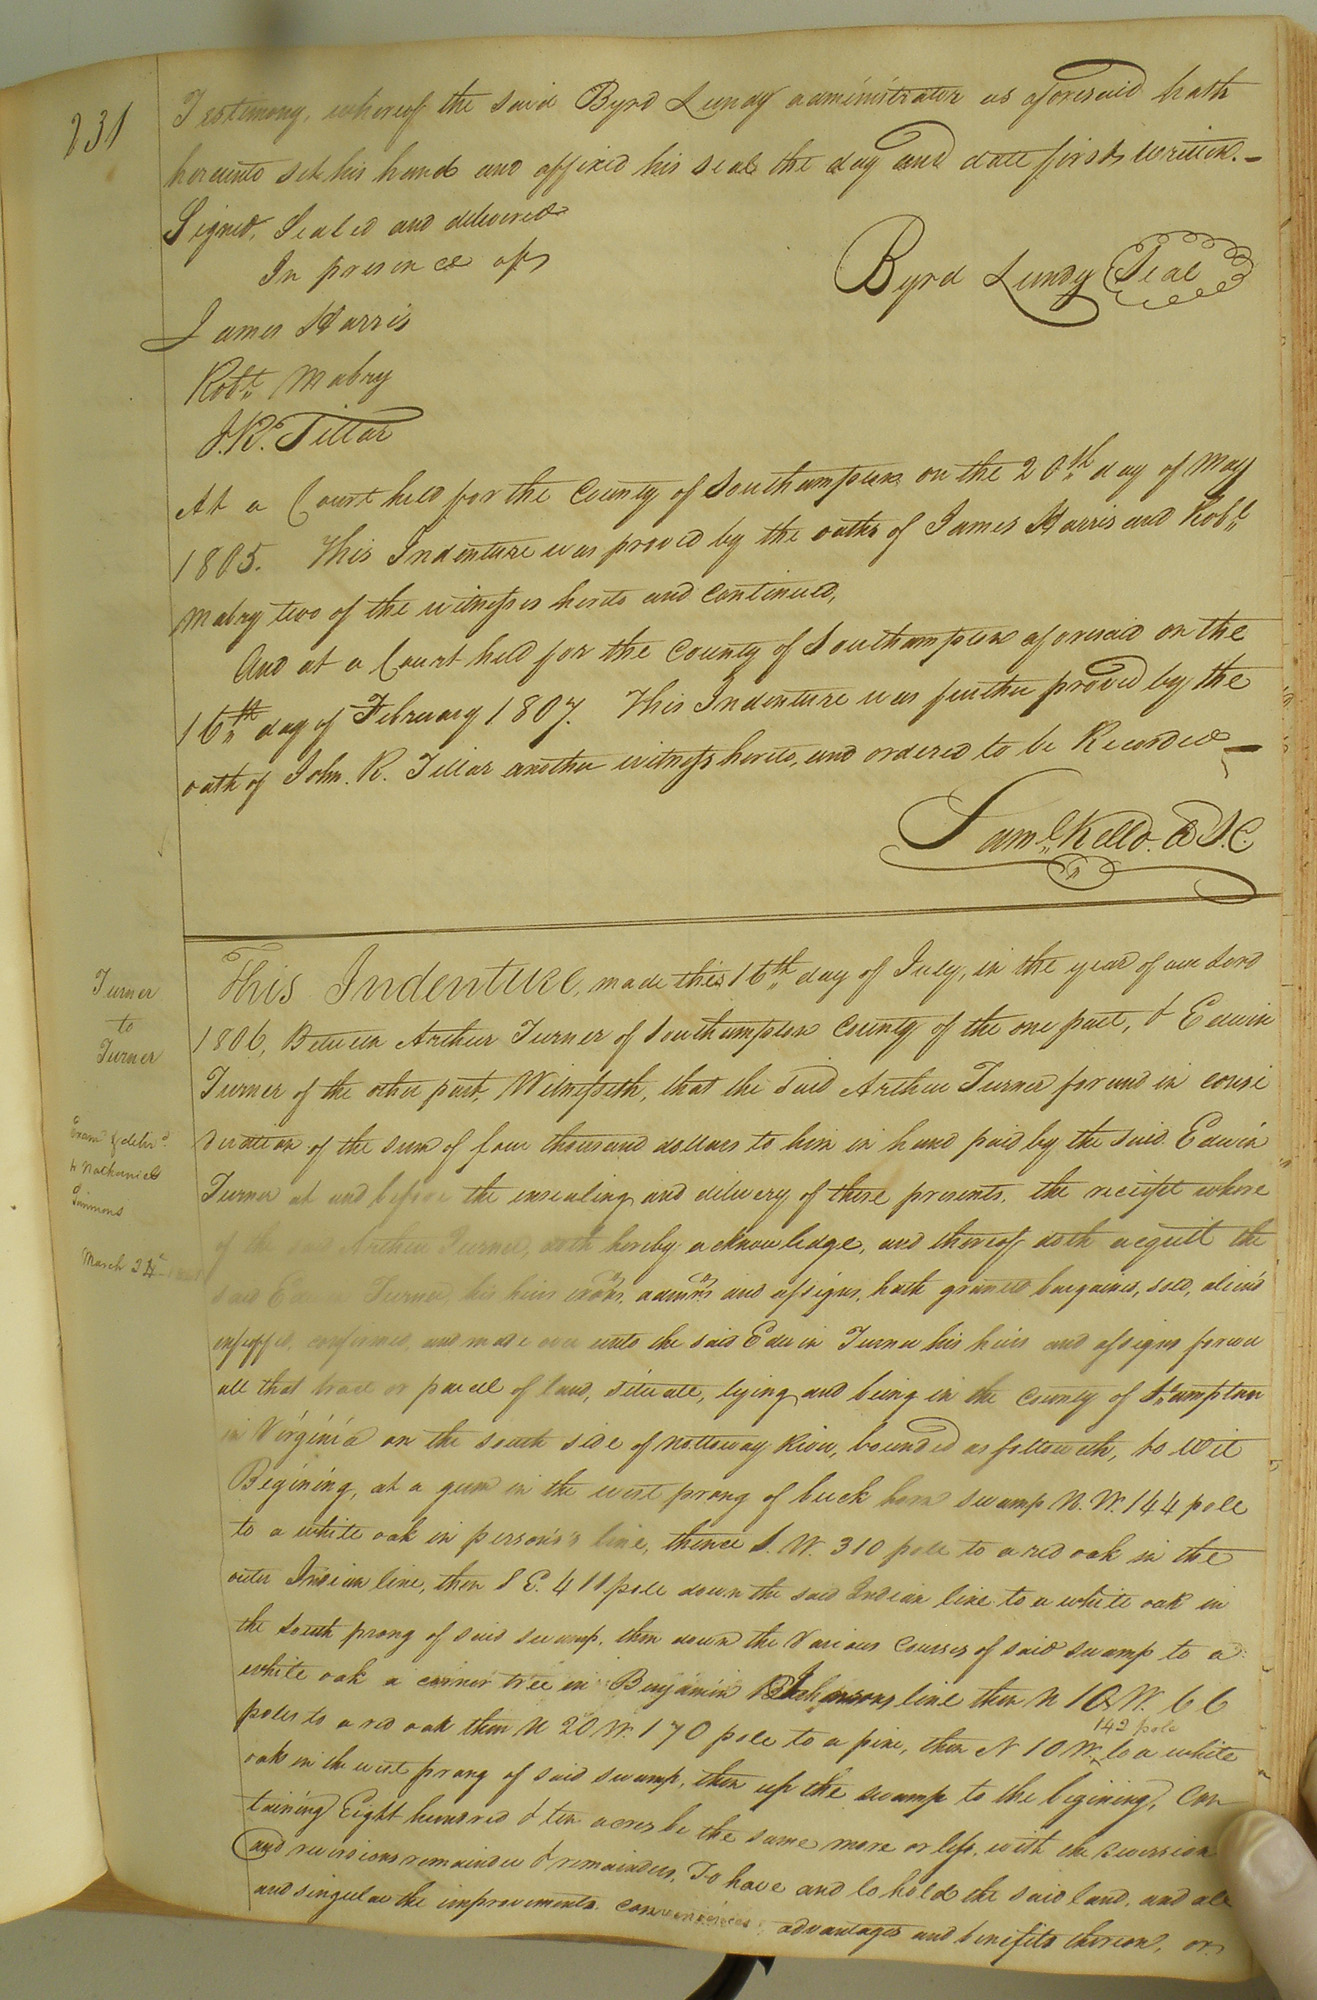 231
Testimony, whereof the said Byrd Lundy administrator as aforesaid hath
hereunto set his hand and affixed his seal the day and date first written.
Signed, Sealed and delivered
In presence of
Byrd Lundy Seal
James Harris
Robt. Mabry
J. R. Tillar
At a Court held for the County of Southampton on the 20th day of May
1805. This Indenture was proved by the oaths of James Harris and Robt.
Mabry two of the witnesses hereto and continued,
And at a Court held for the County of Southampton aforesaid on the
16th day of February 1807. This Indenture was further proved by the
oath of John. R. Tillar another witness hereto, and ordered to be Recorded
Saml. Kello. C S. C.
Turner
to
Turner
Examd. & delivd.
to Nathaniel
Simmons
March 24
This Indenture, made this 16th day of July, in the year of our Lord
1806, Between Arthur Turner of Southampton County of the one part, & Edwin
Turner of the other part, Witnesseth, that the said Arthur Turner for and in consi
deration of the sum of four thousand dollars to him in hand paid by the said Edwin
Turner at and before the ensealing and delivery of these presents, the receipt where
of the said Arthur Turner, doth hereby acknowledge, and thereof doth acquit the
said Edwin Turner, his heirs exors. admors. and assigns, hath granted bargained, sold, alien'd
enfeoffed, confirmed, and made over unto the said Edwin Turner his heirs and assigns forever
all that tract or parcel of land, situate, lying and being in the County of S.ampton
in Virginia on the south side of Nottoway River, bounded as followeth, to wit
Begining, at a gum in the west prong of buck horn swamp N. W. 144 pole
to a white oak in person's line, thence S. W. 310 pole to a red oak in the
outer Indian line, then S E. 411 pole down the said Indian line to a white oak in
the south prong of said swamp, then down the various courses of said swamp to a
white oak a corner tree in Benjamin Johnsons line then N 10 W. 66
poles to a red oak then N 20 W. 170 pole to a pine, then N 10 W. 142 pole to a white
oak in the west prong of said swamp, then up the swamp to the begining, Con
taining Eight hundred & ten acres be the same more or less, with the reversion
and reversions remainder & remainders, To have and to hold the said land, and all
and singular the improvements conveniences advantages and benefits thereon, or